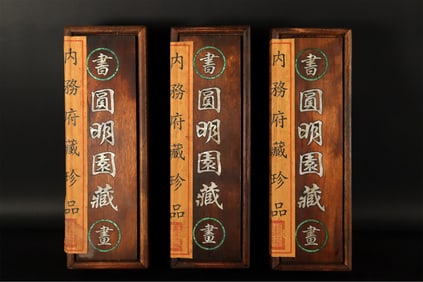 内務府藏珍品
書
圓明園藏
畫
内務府藏珍品
書
圓明園藏
畫
内務府藏珍品
書
圓明園藏
畫